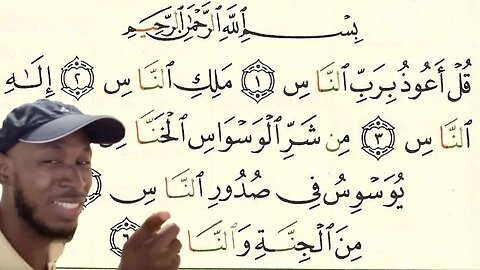 بِسْمِ ٱللَّهِ ٱلرَّحْمَٰنِ ٱلرَّحِيمِ
قُلْ أَعُوذُ بِرَبِّ ٱلنَّا سِ ١ مَلِكِ ٱلنَّا سِ ٢ إِلَٰهِ
ٱلنَّا سِ ٣ مِن شَرِّ ٱلْوَسْوَاسِ ٱلْخَنَّا سِ
يُوَسْوِسُ فِي صُدُورِ ٱلنَّا سِ
مِنَ ٱلْجِنَّةِ وَٱلنَّا ٦